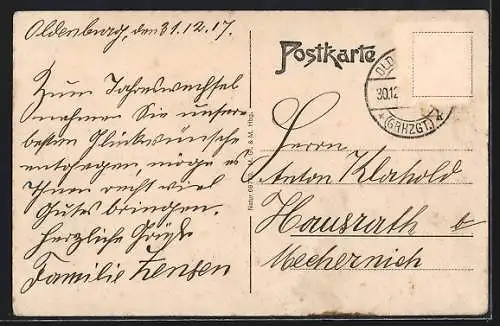 Oldenburg, den 31.12.17.
Zum Jahreswechsel
nehmen Sie unsere
besten Glückwünsche
entgegen, möge es
Ihnen recht viel
Gutes bringen.
Herzliche Grüße
Familie Jensen
Postkarte
OLD
30.12
*(GRHZGT.)*
Herrn
Anton
Hausrath
Mechernich
Natur